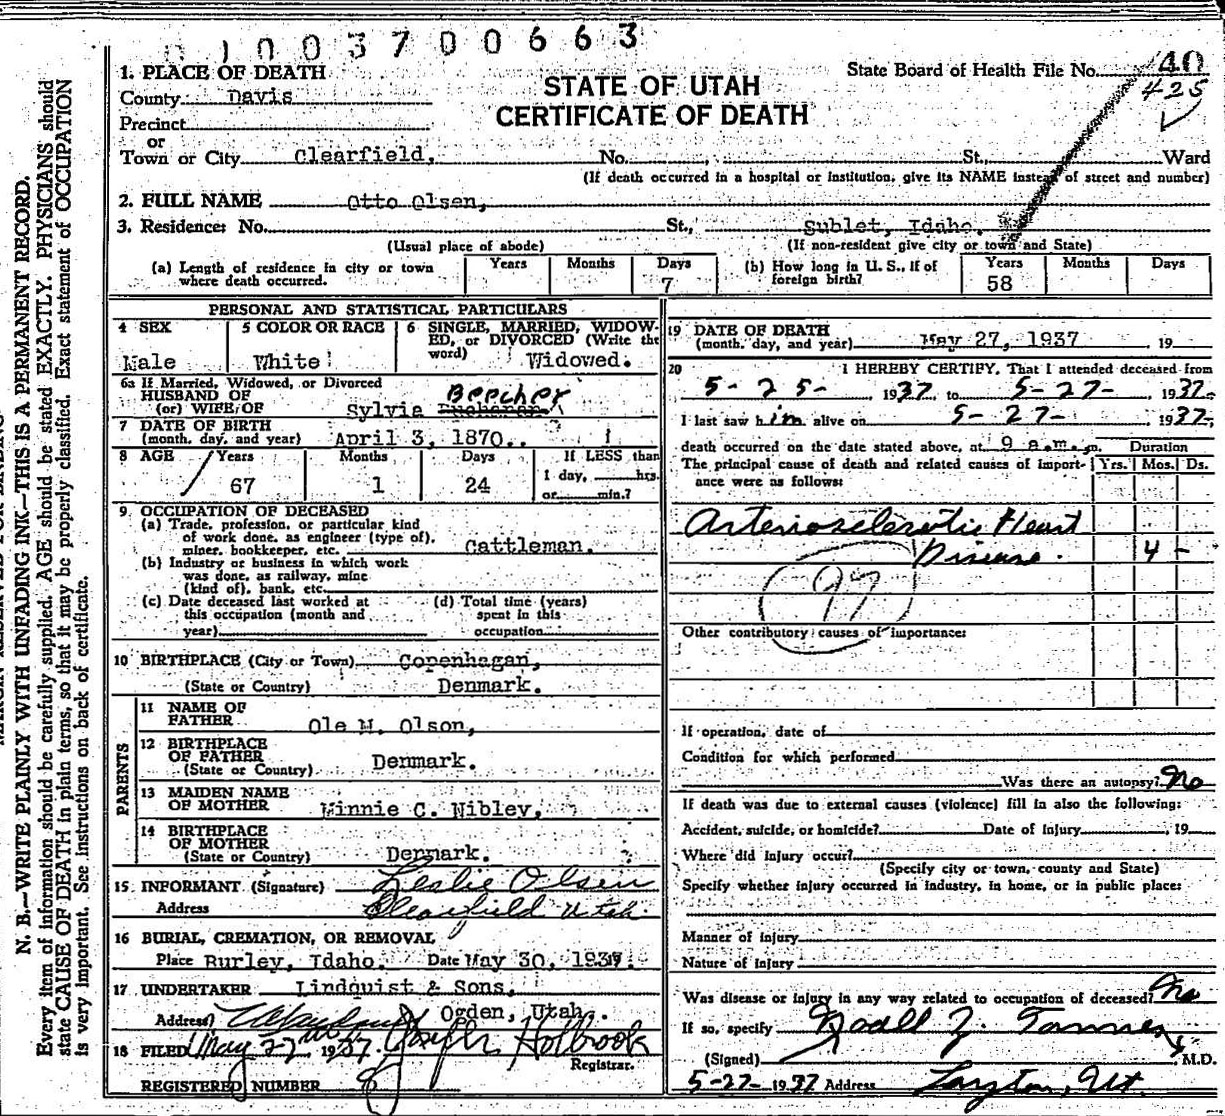 0 1 0 0 3 7 0 0 6 6 3
STATE OF UTAH
CERTIFICATE OF DEATH
State Board of Health File No. 40
425
1. PLACE OF DEATH
County Davis
Precinct
or
Town or City Clearfield, No. St., Ward
(If death occurred in a hospital or institution, give its NAME instead of street and number)
2. FULL NAME Otto Olsen,
3. Residence: No. St., Sublet, Idaho.
(Usual place of abode) (If non-resident give city or town and State)
(a) Length of residence in city or town where death occurred. Years Months Days 7
(b) How long in U. S., if of foreign birth? Years 58 Months Days
PERSONAL AND STATISTICAL PARTICULARS
4 SEX Male
5 COLOR OR RACE White
6 SINGLE, MARRIED, WIDOWED, or DIVORCED (Write the word) Widowed.
6a If Married, Widowed, or Divorced
HUSBAND OF
(or) WIFE OF Sylvia Beecher
7 DATE OF BIRTH
(month, day, and year) April 3, 1870.
8 AGE Years 67 Months 1 Days 24 If LESS than
1 day, hrs.
or min.?
9 OCCUPATION OF DECEASED
(a) Trade, profession, or particular kind
of work done, as engineer (type of),
miner, bookkeeper, etc. Cattleman.
(b) Industry or business in which work
was done, as railway, mine
(kind of), bank, etc.
(c) Date deceased last worked at
this occupation (month and
year)
(d) Total time (years)
spent in this
occupation
10 BIRTHPLACE (City or Town) Copenhagan,
(State or Country) Denmark.
PARENTS
11 NAME OF
FATHER Ole M. Olson,
12 BIRTHPLACE
OF FATHER
(State or Country) Denmark.
13 MAIDEN NAME
OF MOTHER Minnie C. Nibley,
14 BIRTHPLACE
OF MOTHER
(State or Country) Denmark.
15 INFORMANT (Signature) Leslie Olsen
Address Clearfield Utah.
16 BURIAL, CREMATION, OR REMOVAL
Place Burley, Idaho. Date May 30, 1937.
17 UNDERTAKER Lindquist & Sons,
Address Ogden, Utah.
18 FILED May 27 1937. Joseph Holbrook
Registrar.
REGISTERED NUMBER 8
19 DATE OF DEATH
(month, day, and year) May 27, 1937 , 19
20 I HEREBY CERTIFY, That I attended deceased from
5-25- , 1937, to 5-27- , 1937-
I last saw him alive on 5-27- 1937-
death occurred on the date stated above, at 9 a.m. m. Duration
The principal cause of death and related causes of importance were as follows: Yrs. Mos. Ds.
Arteriosclerotic Heart
Disease. 4 -
97
Other contributory causes of importance:
If operation, date of
Condition for which performed
Was there an autopsy? No
If death was due to external causes (violence) fill in also the following:
Accident, suicide, or homicide? Date of Injury , 19
Where did injury occur?
(Specify city or town, county and State)
Specify whether injury occurred in industry, in home, or in public place:
Manner of injury
Nature of Injury
Was disease or injury in any way related to occupation of deceased? No
If so, specify
(Signed) Noall Z. Tanner M.D.
5-27- 1937 Address Layton, Ut.
N. B.—WRITE PLAINLY WITH UNFADING INK—THIS IS A PERMANENT RECORD.
Every item of information should be carefully supplied. AGE should be stated EXACTLY. PHYSICIANS should
state CAUSE OF DEATH in plain terms, so that it may be properly classified. Exact statement of OCCUPATION
is very important. See instructions on back of certificate.